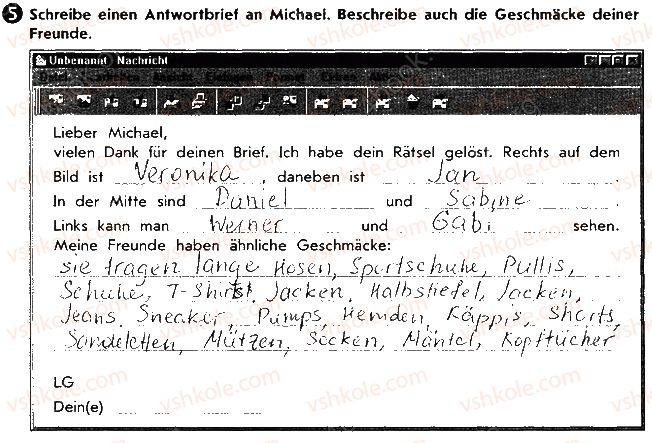 5 Schreibe einen Antwortbrief an Michael. Beschreibe auch die Geschmäcke deiner
Freunde.
Unbenannt Nachricht
Lieber Michael,
vielen Dank für deinen Brief. Ich habe dein Rätsel gelöst. Rechts auf dem
Bild ist Veronika, daneben ist Jan.
In der Mitte sind Daniel und Sabine.
Links kann man Werner und Gabi sehen.
Meine Freunde haben ähnliche Geschmäcke:
sie tragen lange Hosen, Sportschuhe, Pullis,
Schuhe, T-Shirts, Jacken, Halbstiefel, Jacken,
Jeans, Sneaker, Pumps, Hemden, Käppis, Shorts,
Sandeletten, Mützen, Socken, Mäntel, Kopftücher
LG
Dein(e)